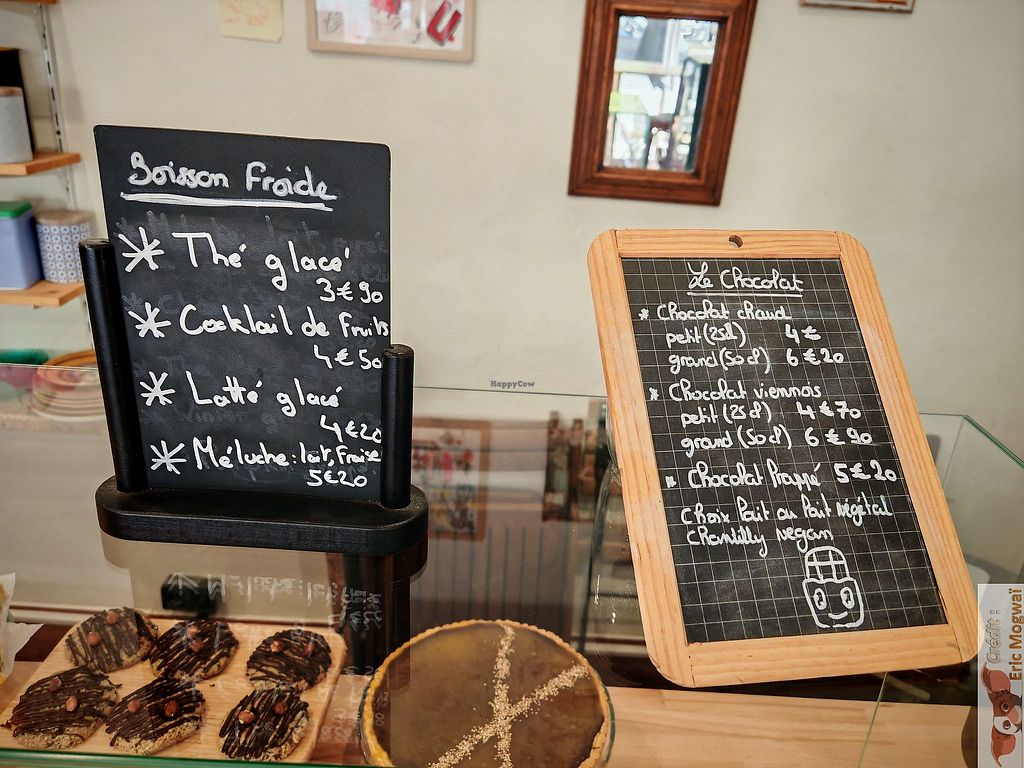 Boisson Froide
* Thé glacé
3€90
* Cocktail de Fruits
4€50
* Latté glacé
4€20
* Méluche: lait, Fraise
5€20
Le Chocolat
* Chocolat chaud
petit (25cl) 4€
grand (50cl) 6€20
* Chocolat viennois
petit (25cl) 4€70
grand (50cl) 6€90
* Chocolat frappé 5€20
Choix lait ou lait végétal
chantilly vegan
HappyCow
Crédit :
Eric Mogwaï